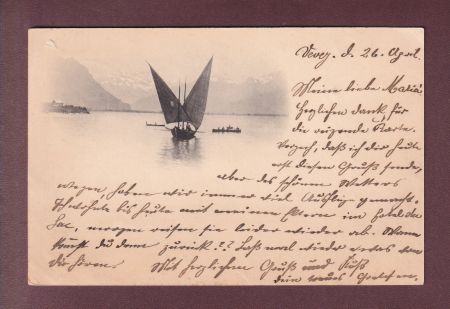 Vevey, d. 26. April.
Meine liebe Maria!
Herzlichen Dank für
die reizende Karte.
Verzeih, daß ich dir heute
erst diesen Gruß sende,
aber des schönen Wetters
wegen, haben wir immer viel Ausflüge gemacht.
bis heute mit meinen Eltern im Hotel du
Lac, morgen reisen sie leider wieder ab. Wann
kommst du denn zurück?? Laß mal wieder etwas von
dir hören. Mit herzlichem Gruß und Kuß
dein